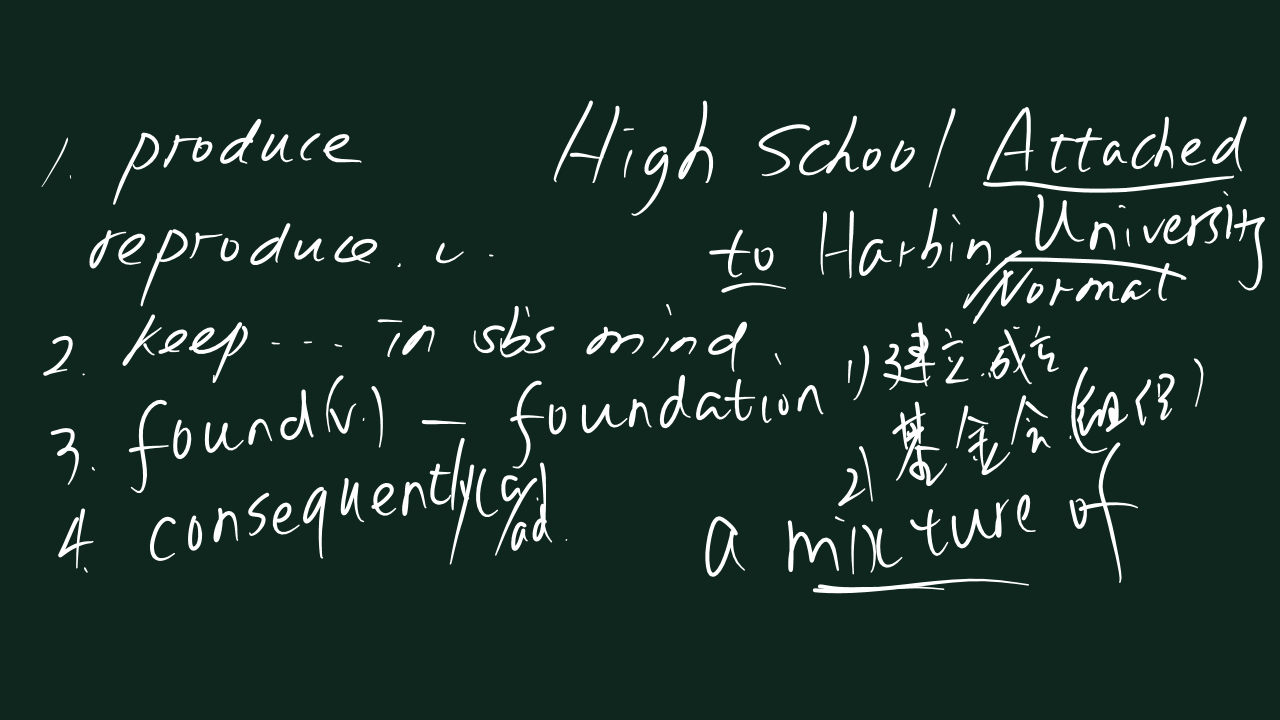 1. produce
reproduce. v.
2. keep ... in sb's mind.
3. found(v.) — foundation
4. consequently/(a)/ad.
High School Attached
to Harbin Normal University
1) 建立.成立
2) 基金会(组织)
a mixture of